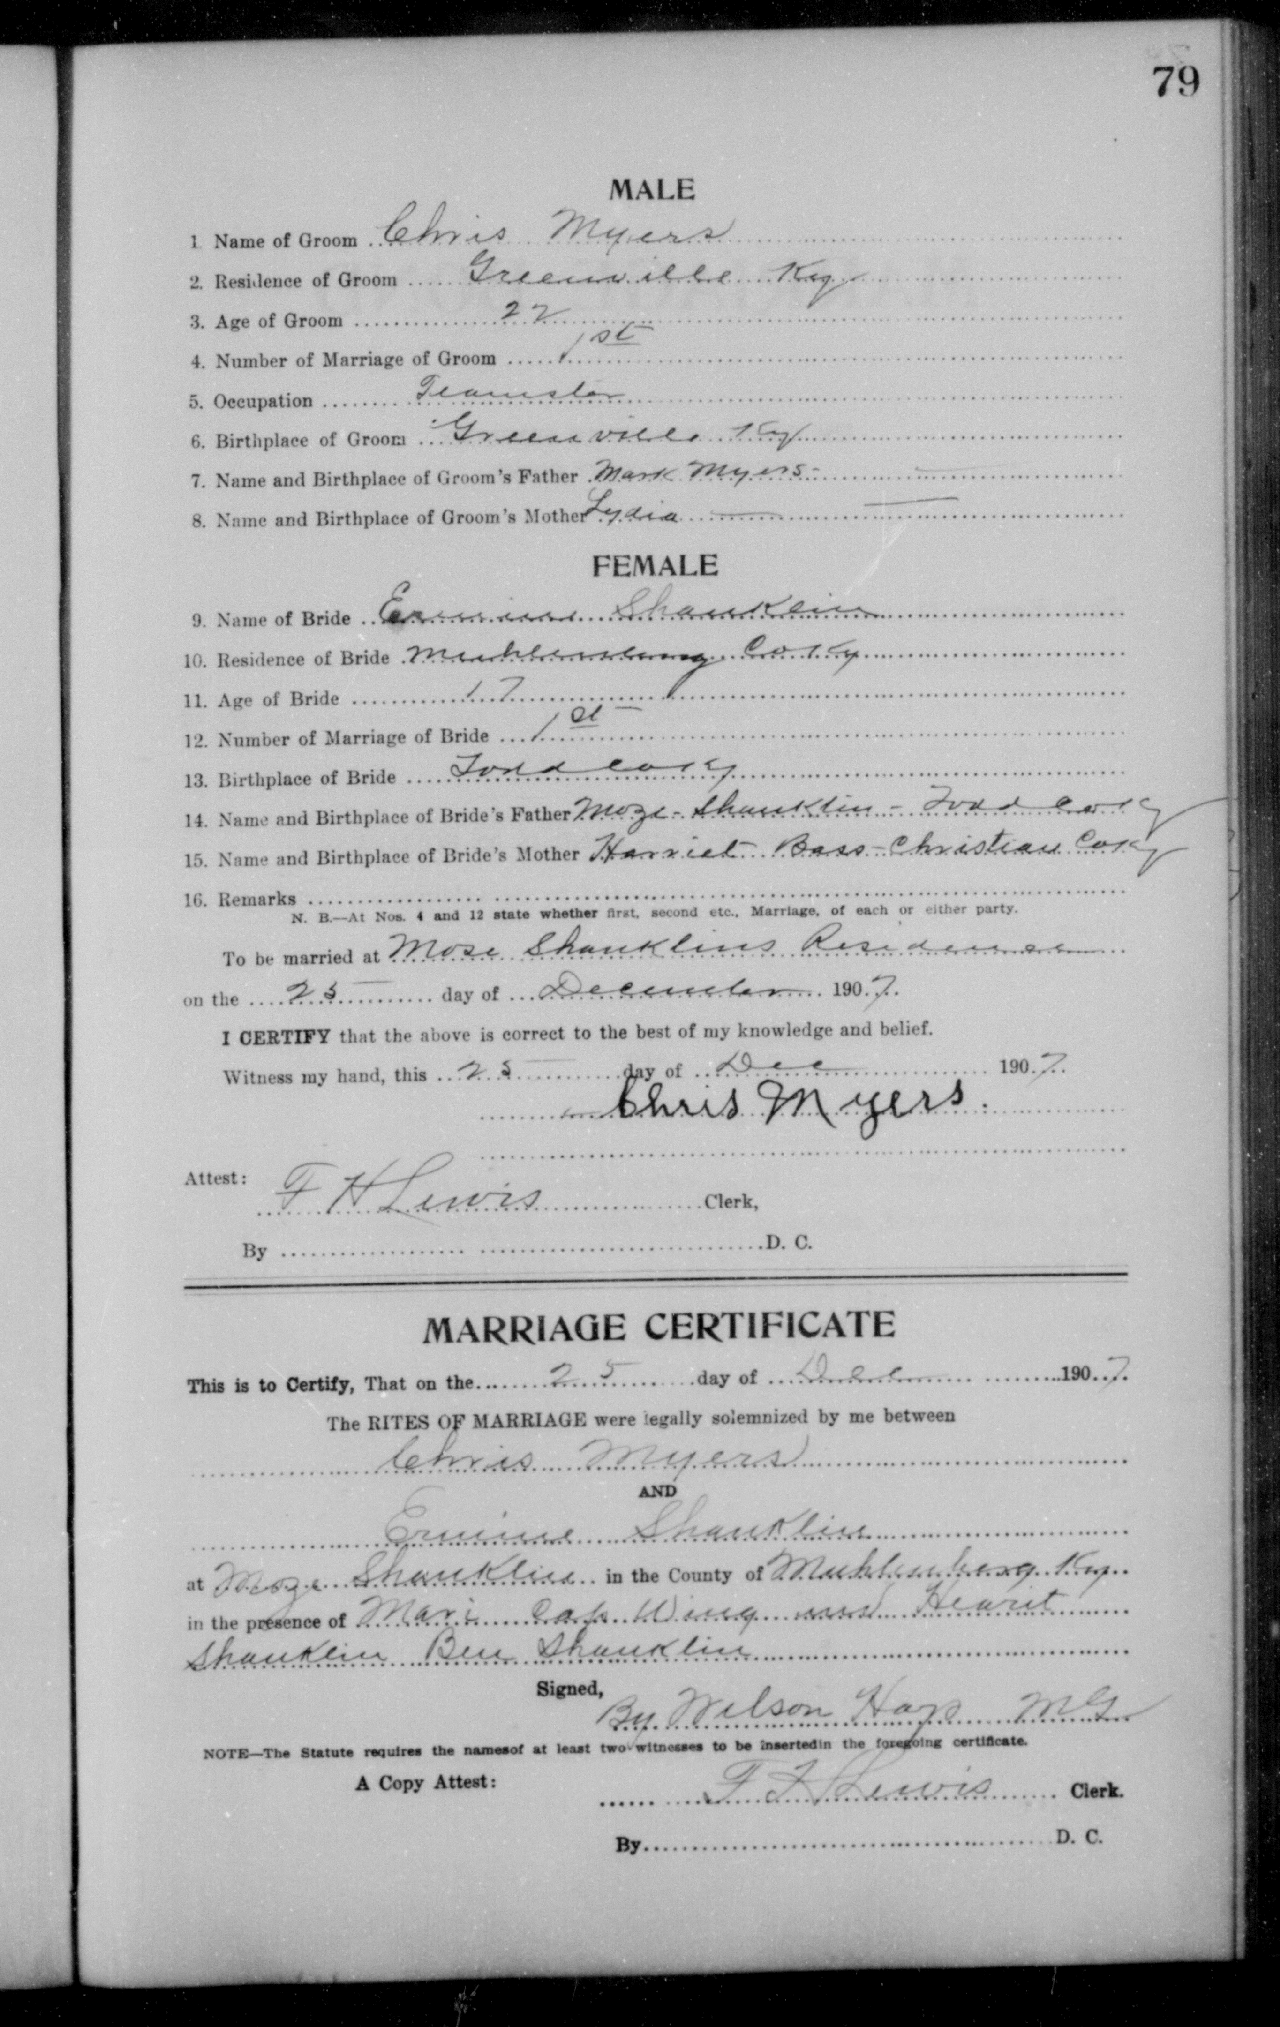 79
MALE
1 Name of Groom Chris Myers
2. Residence of Groom Greenville Ky
3. Age of Groom 22
4. Number of Marriage of Groom 1st
5. Occupation Teamster
6. Birthplace of Groom Greenville Ky
7. Name and Birthplace of Groom's Father Mark Myers-
8. Name and Birthplace of Groom's Mother Lydia
FEMALE
9. Name of Bride Ermine Shanklin
10. Residence of Bride Muhlenberg Co Ky
11. Age of Bride 17
12. Number of Marriage of Bride 1st
13. Birthplace of Bride Todd Co Ky
14. Name and Birthplace of Bride's Father Moze- Shanklin- Todd Co Ky
15. Name and Birthplace of Bride's Mother Harriet Bass- Christian Co Ky
16. Remarks
N. B.—At Nos. 4 and 12 state whether first, second etc., Marriage, of each or either party.
To be married at Mose Shanklins Residence
on the 25 day of December 1907.
I CERTIFY that the above is correct to the best of my knowledge and belief.
Witness my hand, this 25 day of Dec 1907.
Chris Myers.
Attest:
F H Lewis Clerk,
By D. C.
MARRIAGE CERTIFICATE
This is to Certify, That on the 25 day of Dec 1907.
The RITES OF MARRIAGE were legally solemnized by me between
Chris Myers
AND
Ermine Shanklin
at Moze Shanklin in the County of Muhlenberg Ky
in the presence of Cap Wing and Hearit
Shanklin Ben Shanklin
Signed,
By Wilson Hays M G
NOTE—The Statute requires the namesof at least two witnesses to be insertedin the foregoing certificate.
A Copy Attest:
F H Lewis Clerk.
By D. C.